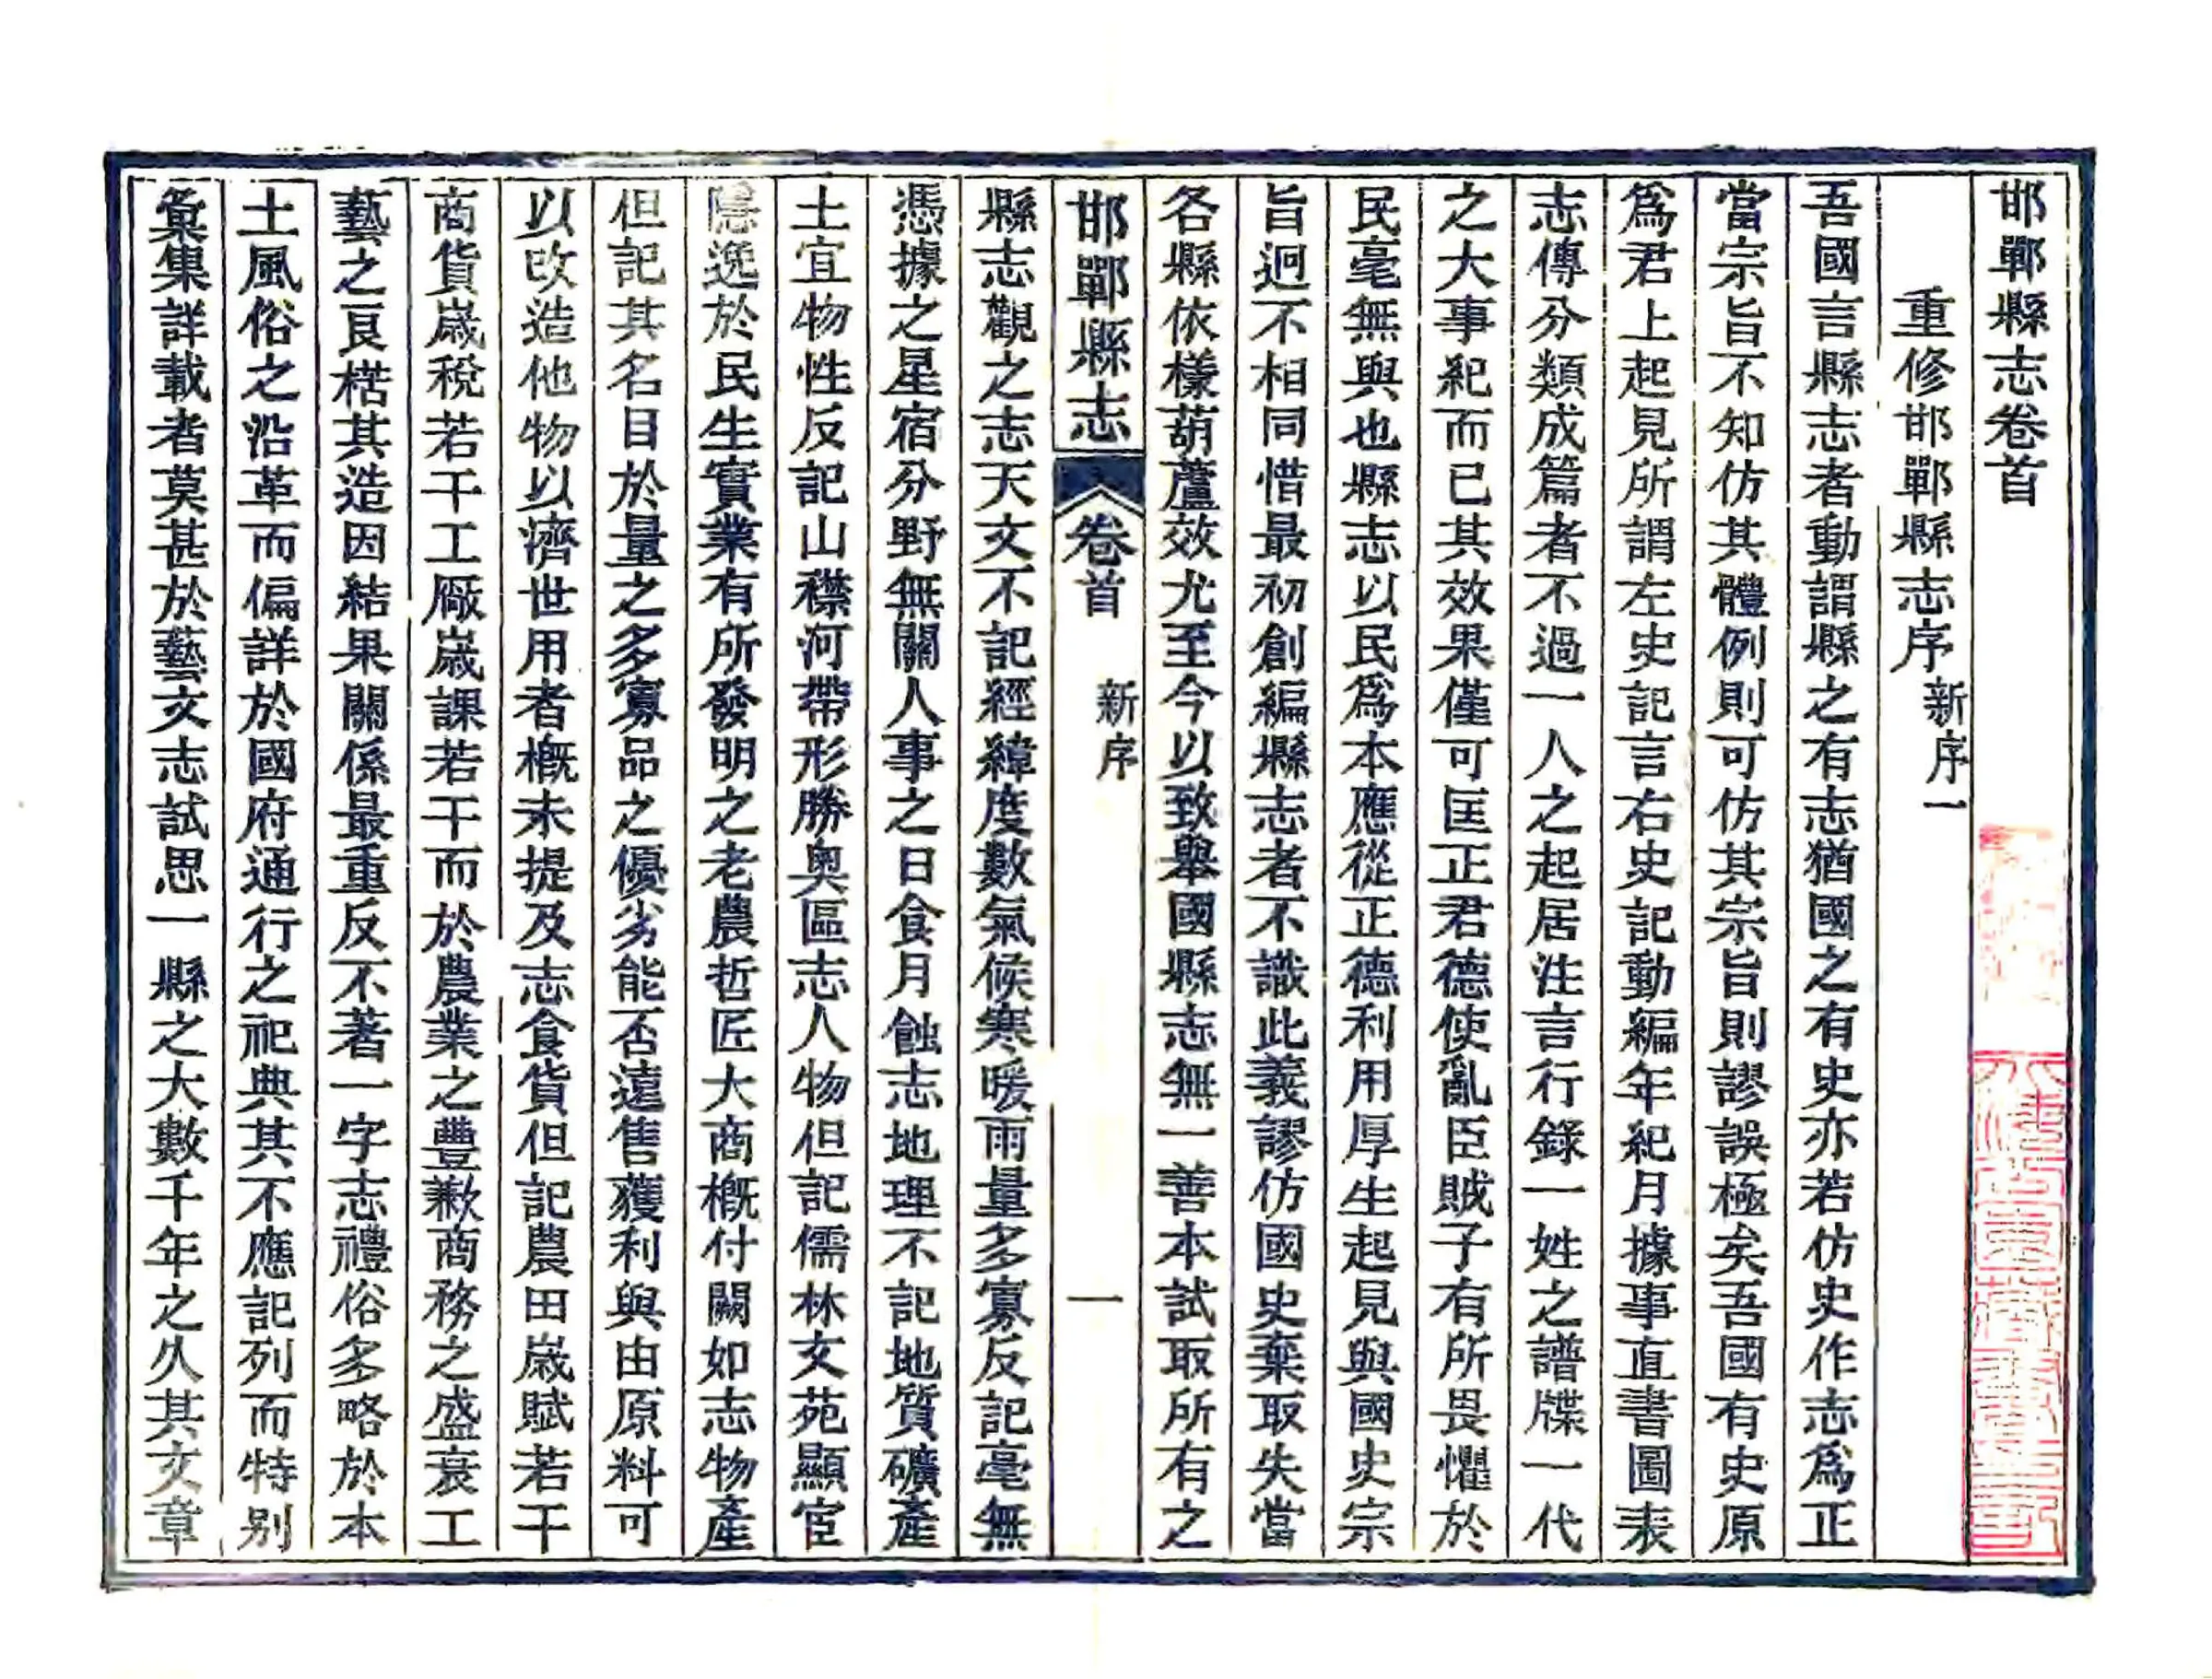 邯鄲縣志卷首
重修邯鄲縣志序 新序一
吾國言縣志者動謂縣之有志猶國之有史亦若仿史作志爲正
當宗旨不知仿其體例則可仿其宗旨則謬誤極矣吾國有史原
爲君上起見所謂左史記言右史記動編年紀月據事直書圖表
志傳分類成篇者不過一人之起居注言行錄一姓之譜牒一代
之大事紀而已其效果僅可匡正君德使亂臣賊子有所畏懼於
民毫無與也縣志以民爲本應從正德利用厚生起見與國史宗
旨迥不相同惜最初創編縣志者不識此義謬仿國史棄取失當
各縣依樣葫蘆效尤至今以致舉國縣志無一善本試取所有之
邯鄲縣志 卷首 新序 一
縣志觀之志天文不記經緯度數氣候寒暖雨量多寡反記毫無
憑據之星宿分野無關人事之日食月蝕志地理不記地質礦產
土宜物性反記山襟河帶形勝奧區志人物但記儒林文苑顯宦
隱逸於民生實業有所發明之老農哲匠大商槪付闕如志物產
但記其名目於量之多寡品之優劣能否遠售獲利與由原料可
以改造他物以濟世用者槪未提及志食貨但記農田歲賦若干
商貨歲稅若干工廠歲課若干而於農業之豐歉商務之盛衰工
藝之良楛其造因結果關係最重反不著一字志禮俗多略於本
土風俗之沿革而偏詳於國府通行之祀典其不應記列而特別
彙集詳載者莫甚於藝文志試思一縣之大數千年之久其文章